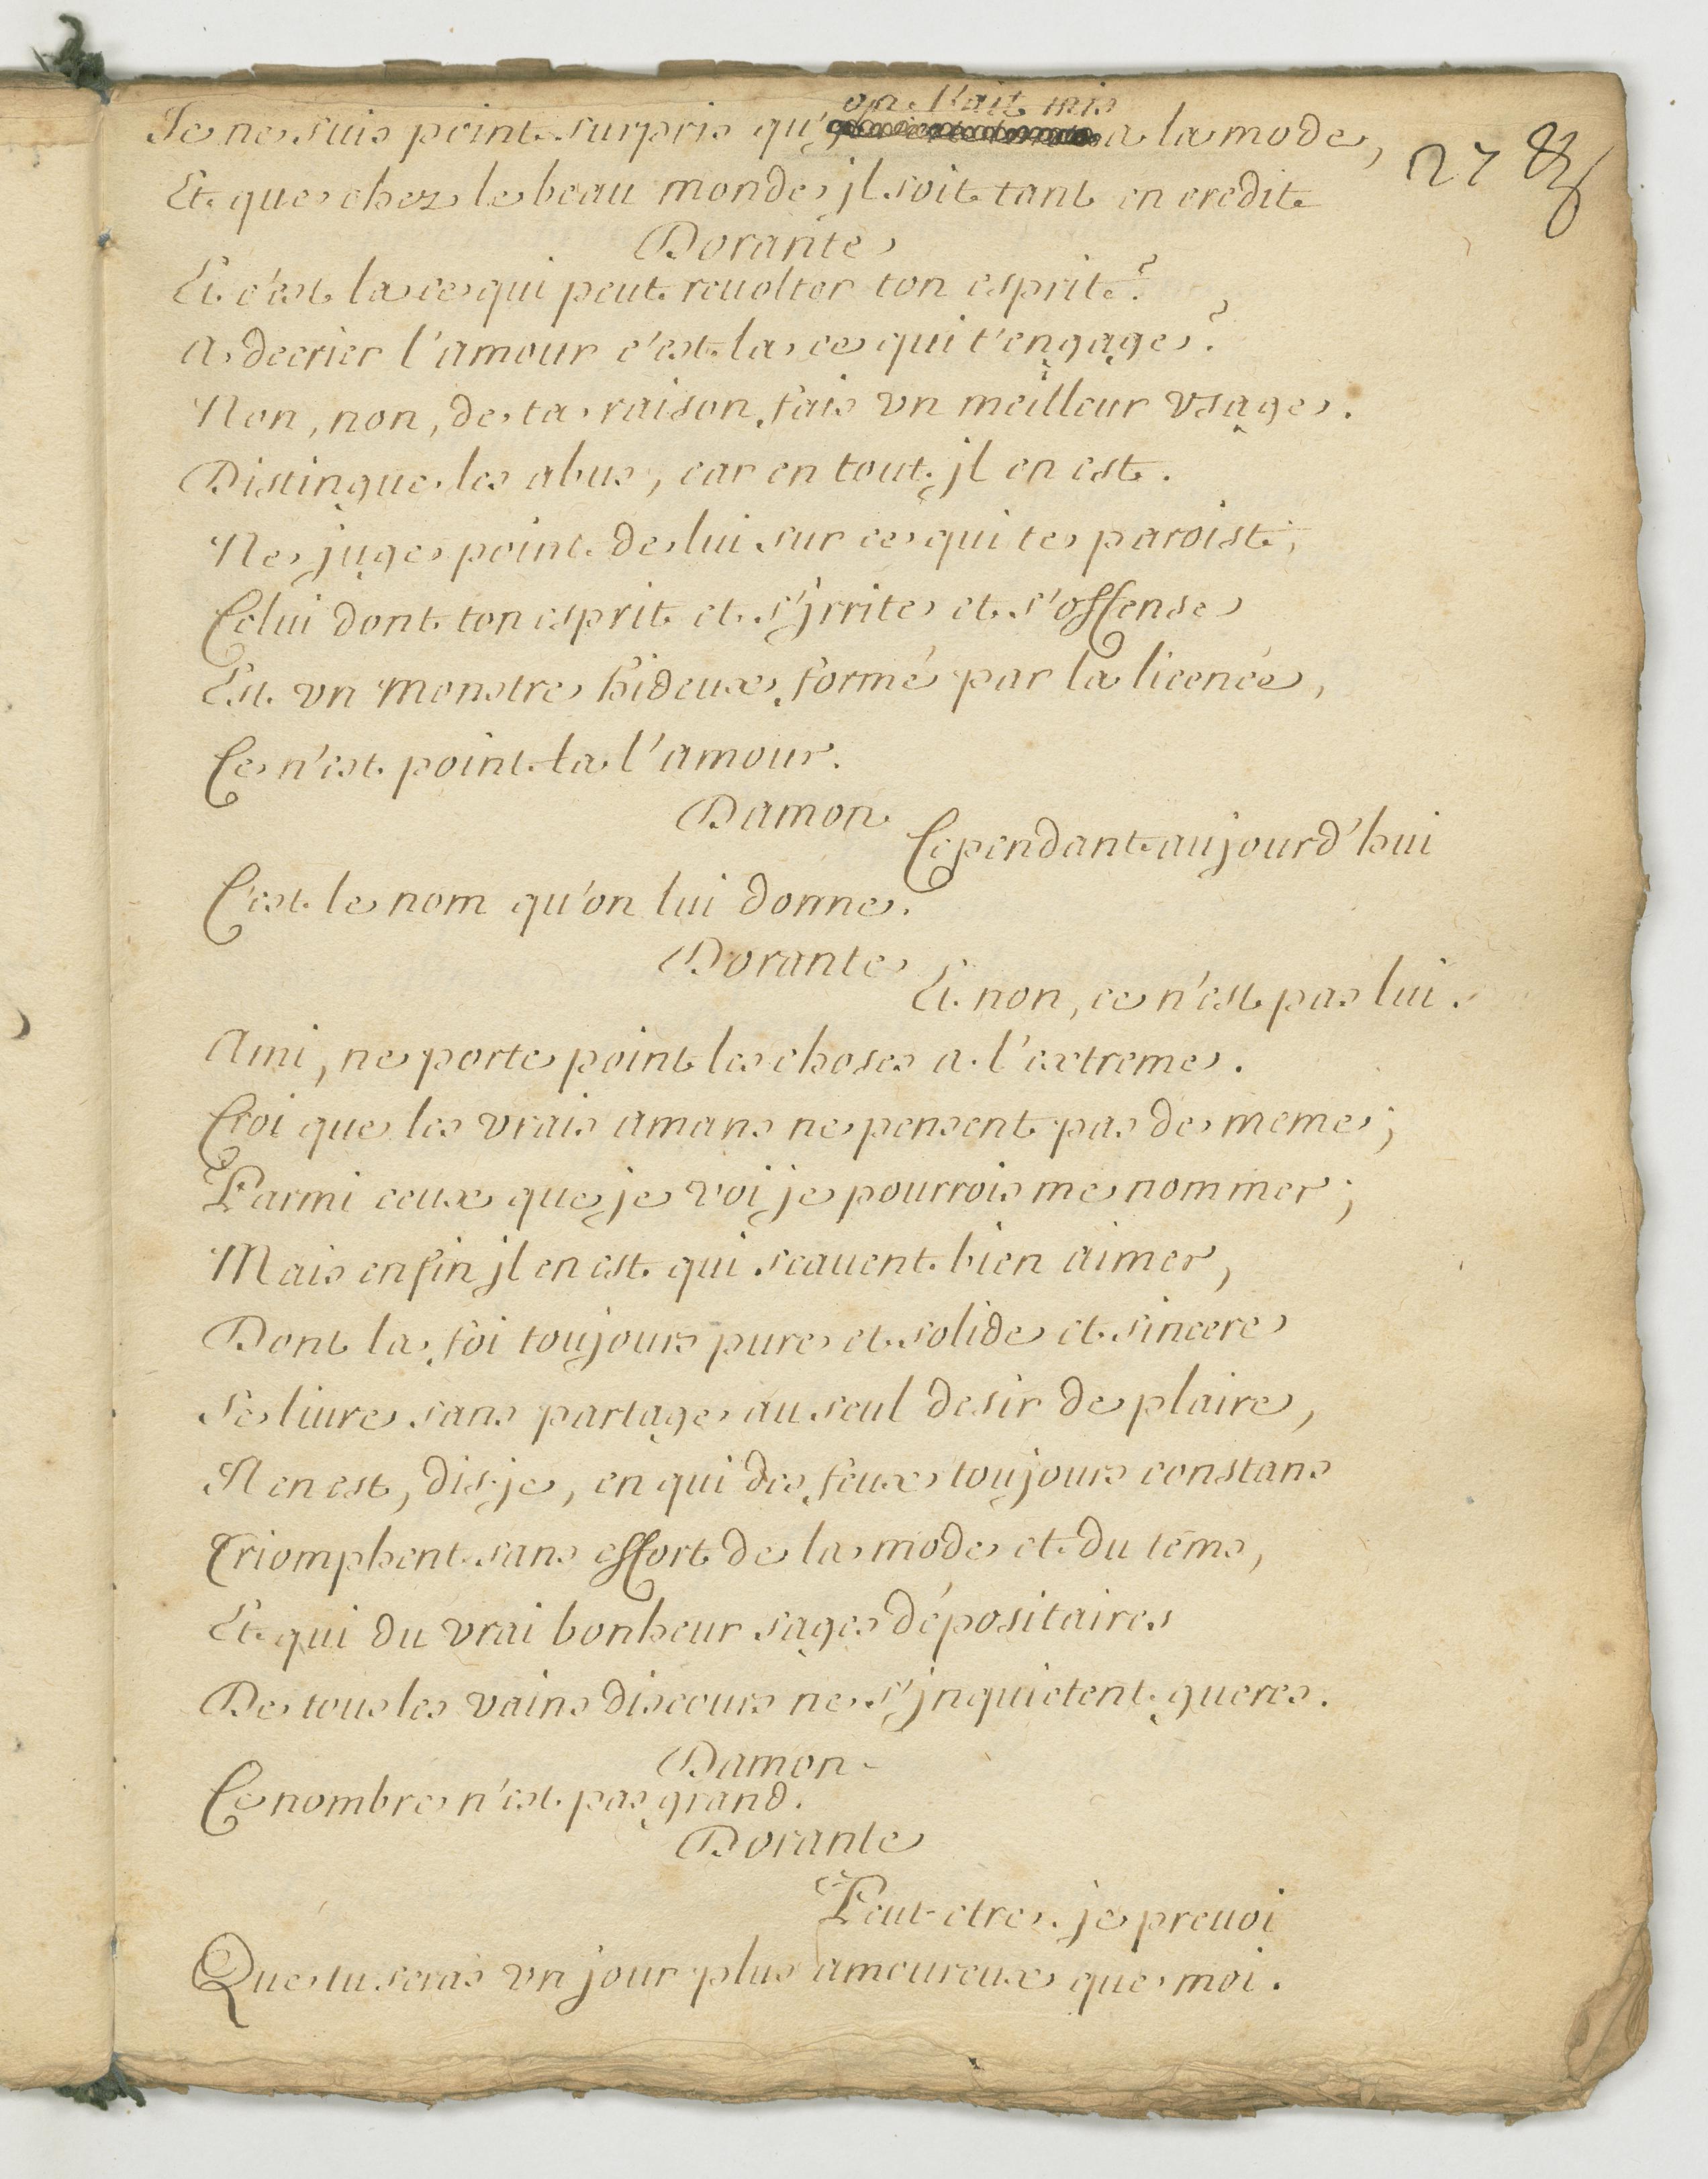 on l'ait mis
Je ne suis point surpris qu' a la mode,
27
Et que chez le beau monde jl soit tant en credit
Dorante
Et c'est la ce qui peut reuolter ton esprit?
A decrier l'amour c'est la ce qui t'engage?
Non, non, de ta raison fais vn meilleur vsage.
Distingue les abus, car en tout jl en est.
Ne juge point de lui sur ce qui te paroist;
Celui dont ton esprit et s'jrrite et s'offense
Est vn monstre hideux formé par la licence,
Ce n'est point la l'amour.
Damon
Cependant aujourd'hui
C'est le nom qu'on lui donne.
Dorante
Et non, ce n'est pas lui.
Ami, ne porte point les choses a l'extreme.
Croi que les vrais amans ne pensent pas de meme;
Parmi ceux que je voi je pourrois me nommer;
Mais enfin jl en est qui scauent bien aimer,
Dont la foi toujours pure et solide et sincere
Se liure sans partage au seul desir de plaire,
Il en est, dis-je, en qui des feux toujours constans
Triomphent sans effort de la mode et du tems,
Et qui du vrai bonheur sages dépositaires
De tous les vains discours ne s'jnquietent gueres.
Damon
Ce nombre n'est pas grand.
Dorante
Peut-etre. je preuoi
Que tu seras vn jour plus amoureux que moi.